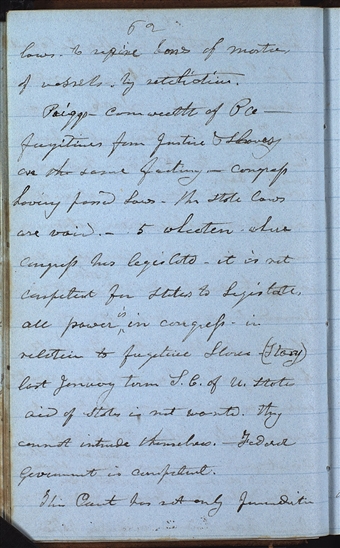 62
laws. to require bonds of masters
of vessels. by retaliation.
Prigg - Commwealth of Pa -
fugitives from Justice & Slavery
on the same footing - congress
having passed laws - the state laws
are void. - 5 Wheaton - where
congress has legislated - it is not
competent for states to legislate.
all power is in congress - in
relation to fugitive Slaves (Story)
last January term S.C. of U. State
aid of States is not wanted. they
cannot intrude themselves. - Federal
Goverment is competent.
This Court has not only Jurisdictn